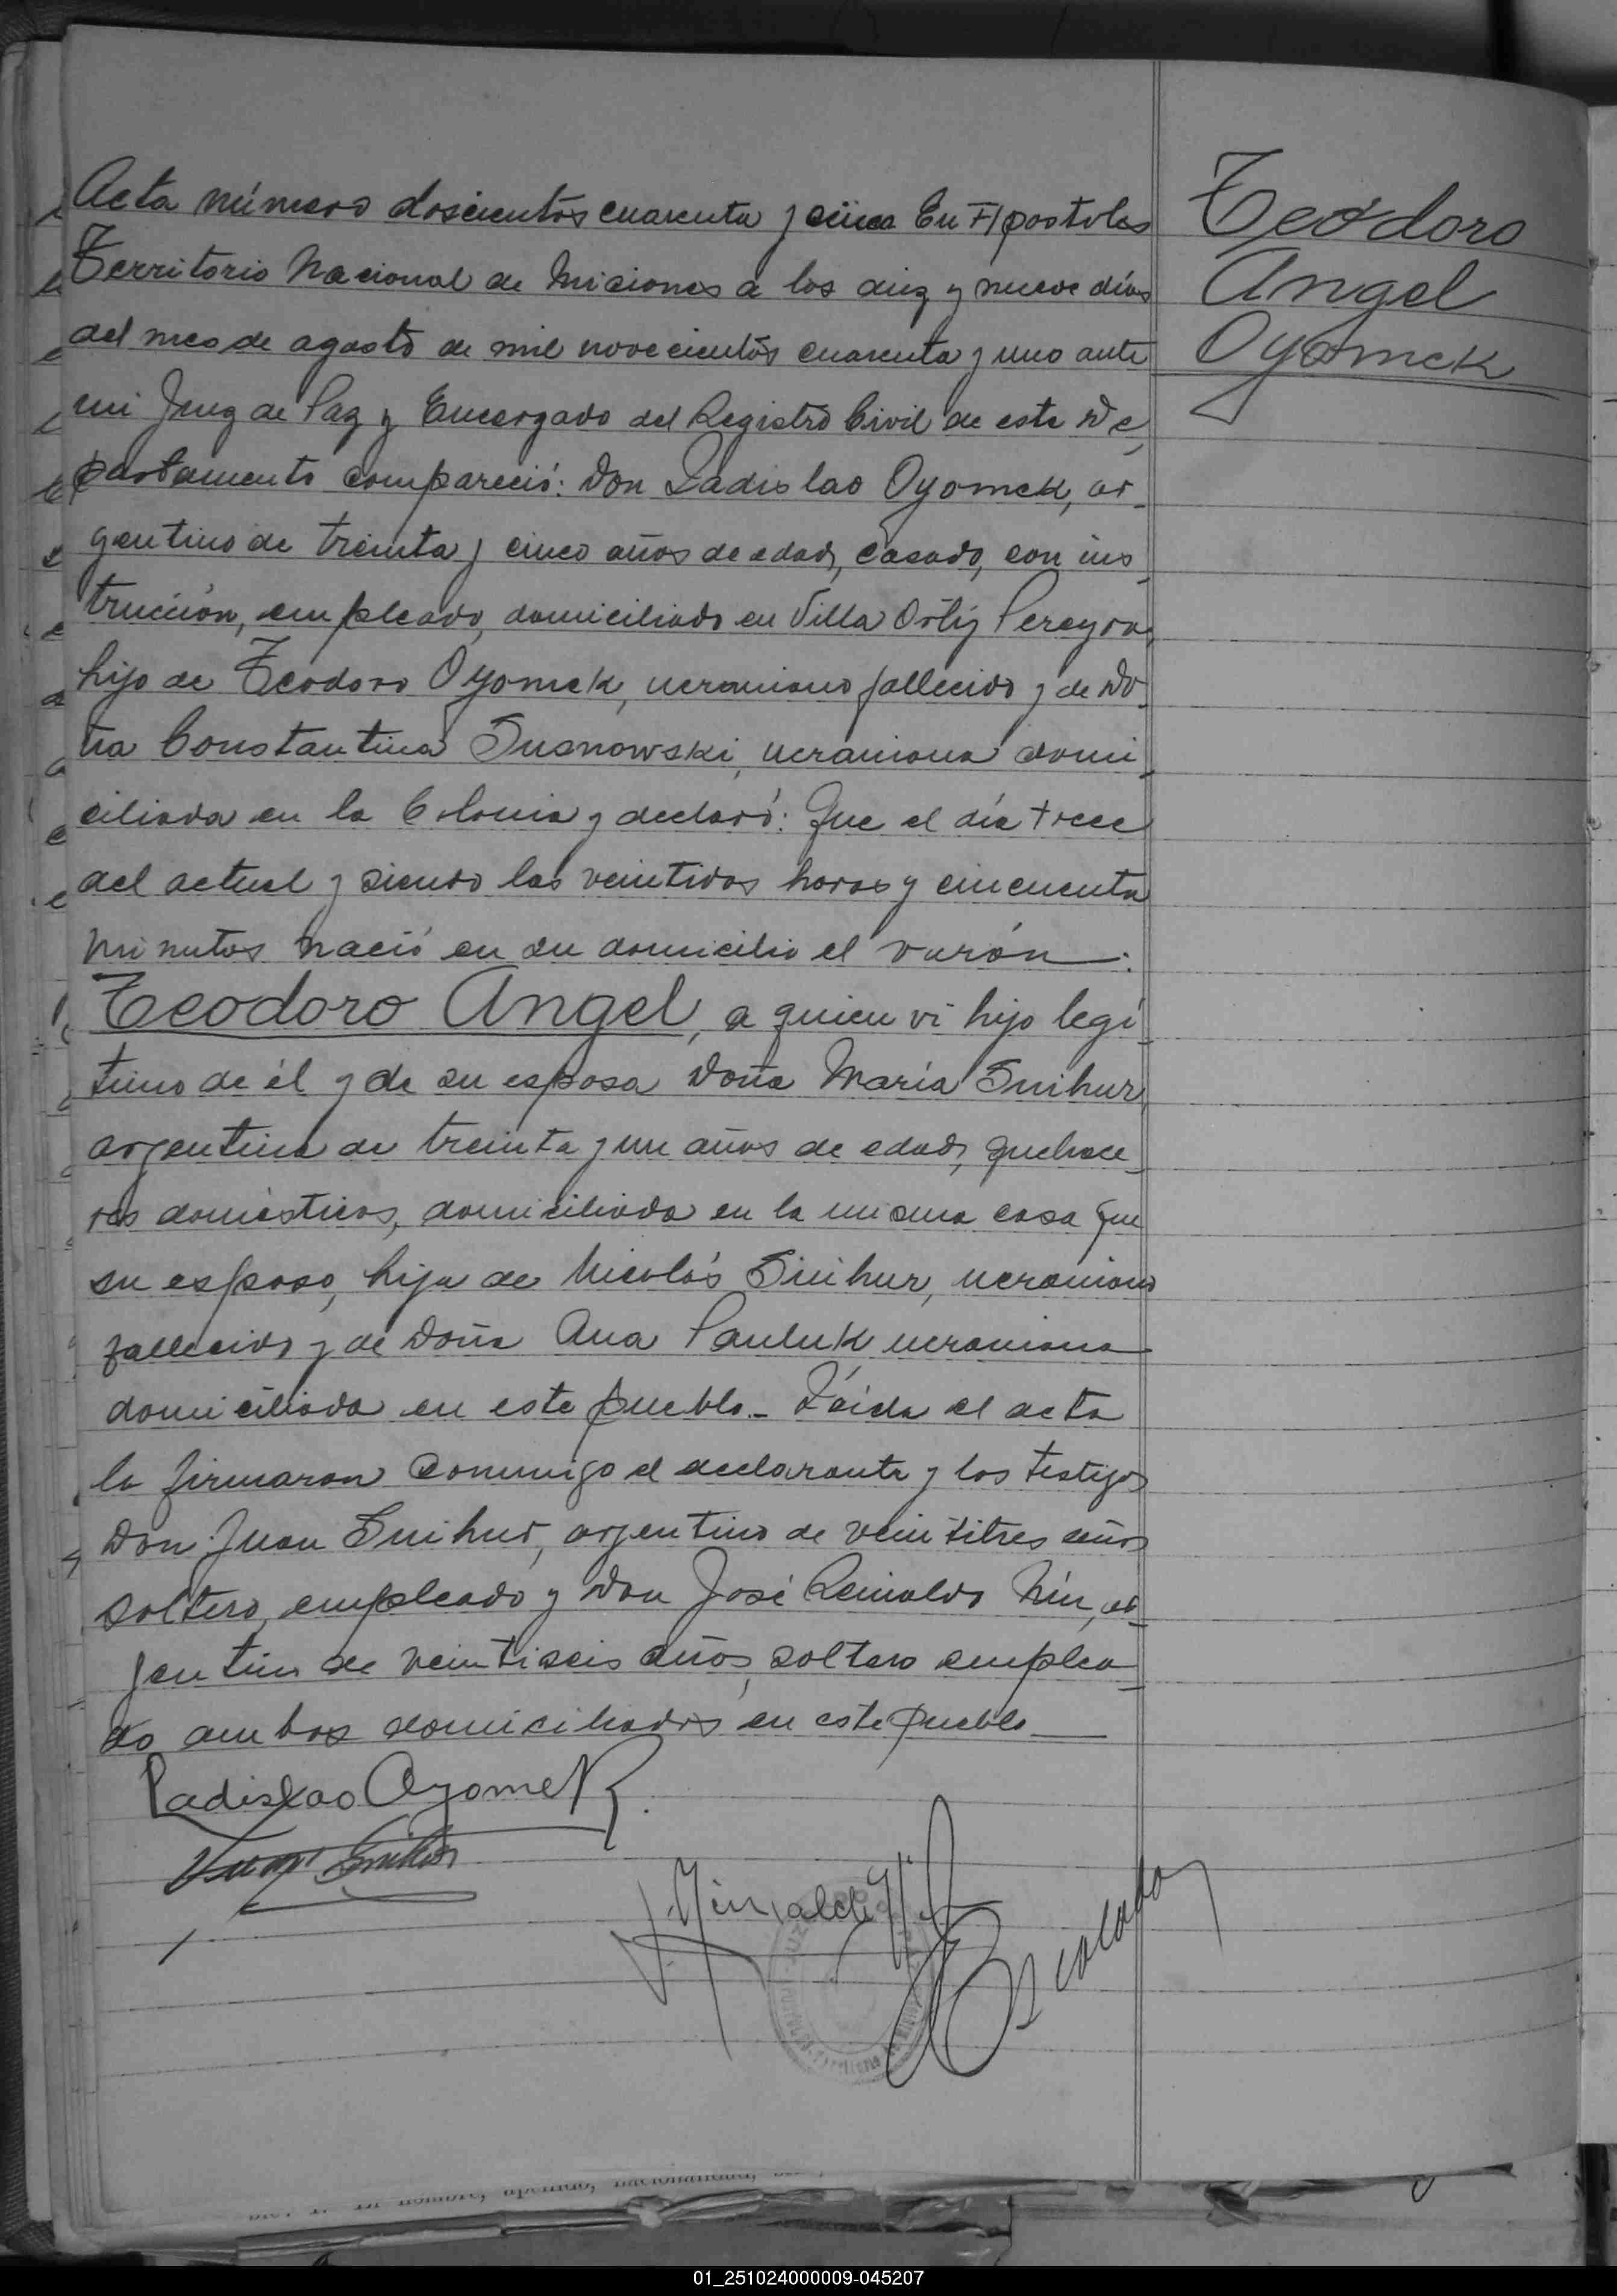 Acta número doscientos cuarenta y cinco En Apostoles
Territorio Nacional de Miciones a los diez y nueve días
del mes de agosto de mil novecientos cuarenta y uno ante
mi Juez de Paz y Encargado del Registro Civil de este De
partamento compareció: Don Ladislao Oyomek, ar-
gentino de treinta y cinco años de edad, casado, con ins-
trucción, empleado, domiciliado en Villa Ortiz Pereyra,
hijo de Teodoro Oyomek, ucraniano fallecido y de Do-
ña Constantina Susnowski, ucraniana domi-
ciliada en la Colonia y declaró: Que el día trece
del actual y siendo las veintidos horas y cincuenta
minutos nació en su domicilio el varón:
Teodoro Angel, a quien vi hijo legi-
timo de él y de su esposa Doña María Snihur,
argentina de treinta y un años de edad, quehace-
res domésticos, domiciliada en la misma casa que
su esposo, hija de Nicolás Snihur, ucraniano
fallecido y de Doña Ana Pauluk ucraniana
domiciliada en este pueblo.- Léida el acta
la firmaron conmigo el declarante y los testigos
Don Juan Snihur, argentino de veintitres años
soltero, empleado y Don José Reinaldo Nin, ar-
gentino de veintiseis años, soltero emplea-
do ambos domiciliados en este pueblo
Ladislao Oyomek.
Juan Snihur
Escalada
Teodoro
Angel
Oyomek
01_251024000009-045207